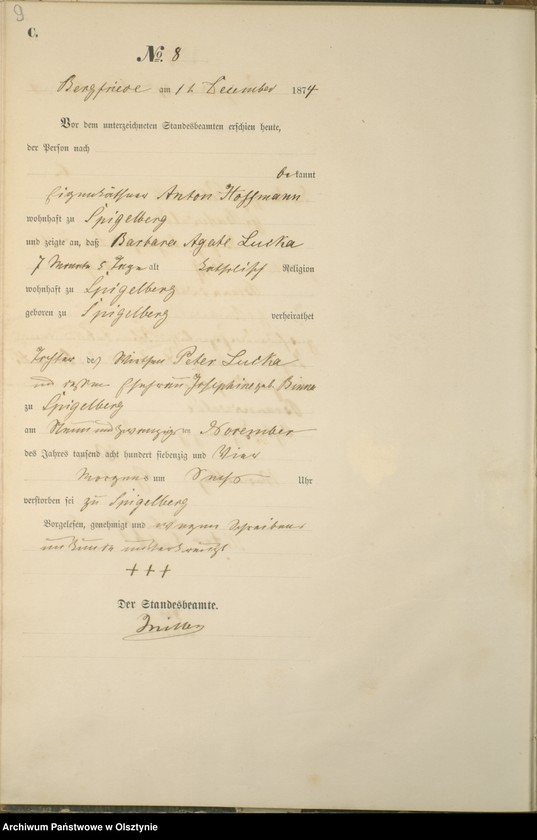 9
C.
No. 8
Bergfriede am 1ten December 1874
Vor dem unterzeichneten Standesbeamten erschien heute,
der Person nach
bekannt
Eigenkäthner Anton Hoffmann
wohnhaft zu Spigelberg
und zeigte an, daß Barbara Agate Lucka
7 Monate 5 Tage alt katholisch Religion
wohnhaft zu Spigelberg
geboren zu Spigelberg verheirathet
Tochter des Wirthen Peter Lucka
und dessen Ehefrau Josephine geb.
zu Spigelberg
am Neun und zwanzigsten November
des Jahres tausend acht hundert siebenzig und Vier
Morgens um Sechs Uhr
verstorben sei zu Spigelberg
Vorgelesen, genehmigt und wegen Schreibens
unkunde unterkreuzt
+++
Der Standesbeamte.
Archiwum Państwowe w Olsztynie